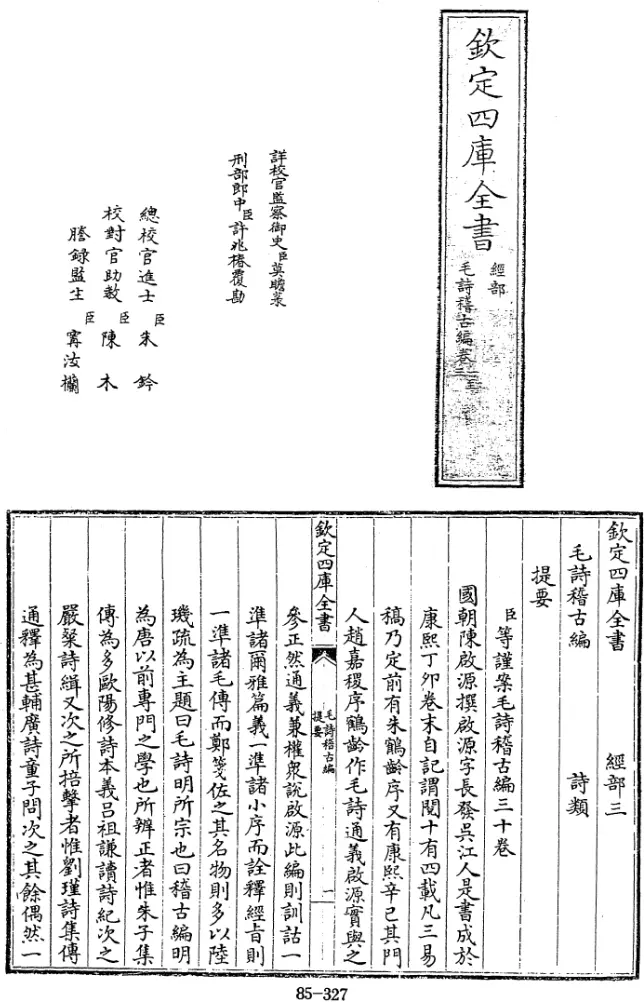 欽定四庫全書
經部
毛詩稽古編卷
詳校官監察御史臣莫瞻菉
刑部郎中臣許兆椿覆勘
總校官進士臣朱鈐
校對官助教臣陳木
謄錄監生臣
欽定四庫全書 經部三
毛詩稽古編 詩類
提要
臣等謹案毛詩稽古編三十卷
國朝陳啟源撰啟源字長發吳江人是書成於
康熙丁卯卷末自記謂閱十有四載凡三易
稿乃定前有朱鶴齡序又有康熙辛巳其門
人趙嘉稷序鶴齡作毛詩通義啟源實與之
欽定四庫全書 毛詩稽古編 提要 一
參正然通義兼權衆說啟源此編則訓詁一
準諸爾雅篇義一準諸小序而詮釋經旨則
一準諸毛傳而鄭箋佐之其名物則多以陸
璣疏為主題曰毛詩明所宗也曰稽古編明
為唐以前專門之學也所辨正者惟朱子集
傳為多歐陽修詩本義呂祖謙讀詩紀次之
嚴粲詩緝又次之所掊擊者惟劉瑾詩集傳
通釋為甚輔廣詩童子問次之其餘偶然一
85-327